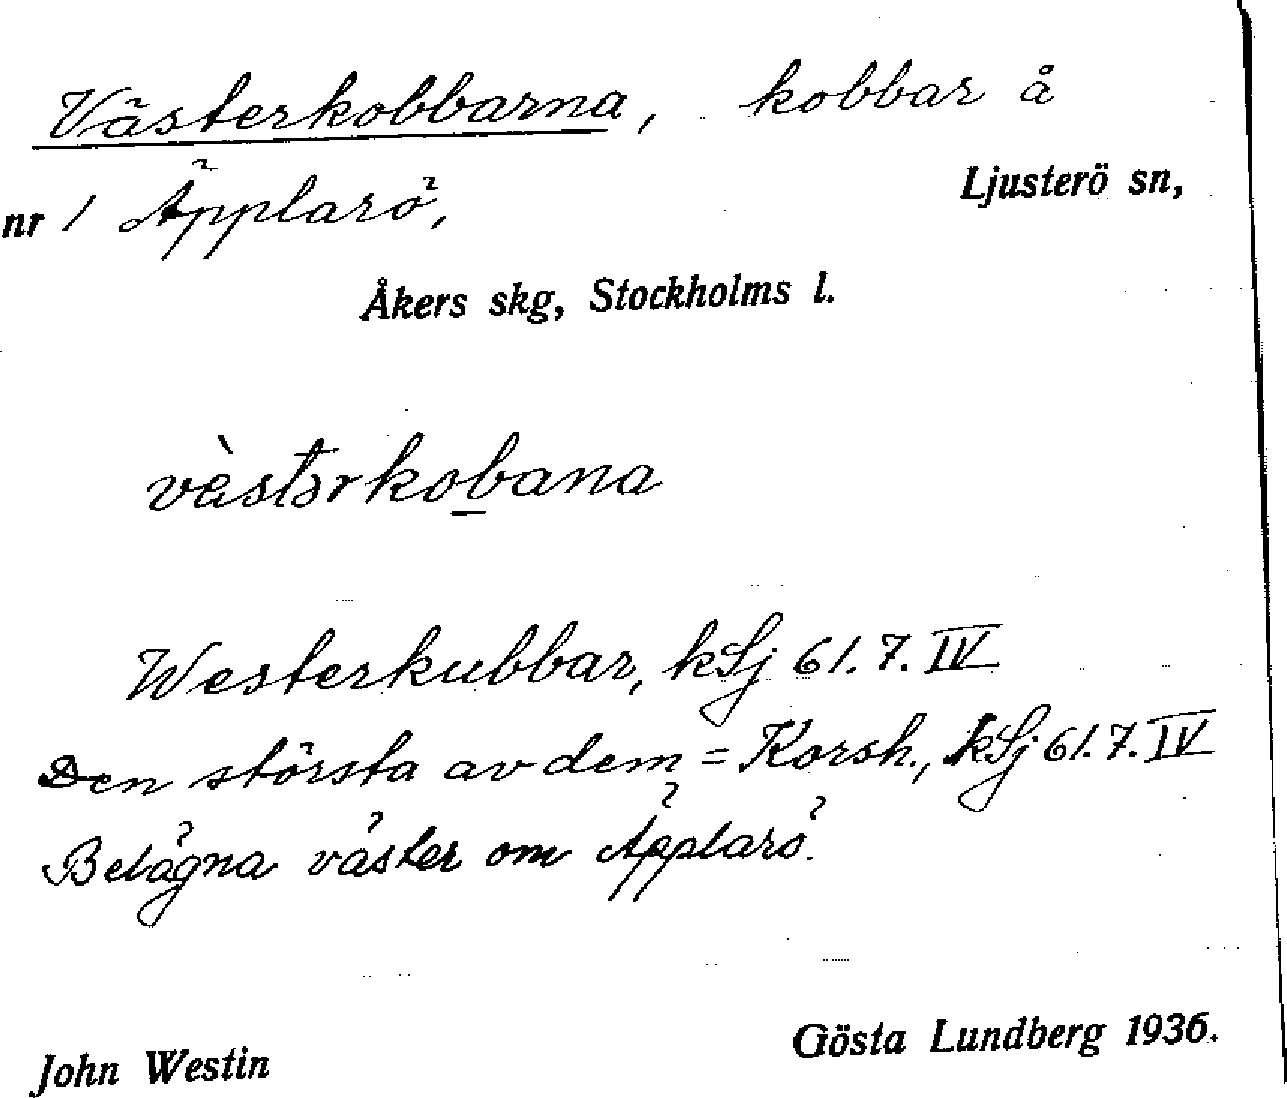 Västerkobbarna, kobbar å
nr 1 Äpplarö, Ljusterö sn,
Åkers skg, Stockholms l.
vèstərkobana
Westerkubbar, kLj 61.7.IV
Den största av dem = Korsh., kLj 61.7.IV
Belägna väster om Äpplarö.
John Westin Gösta Lundberg 1936.